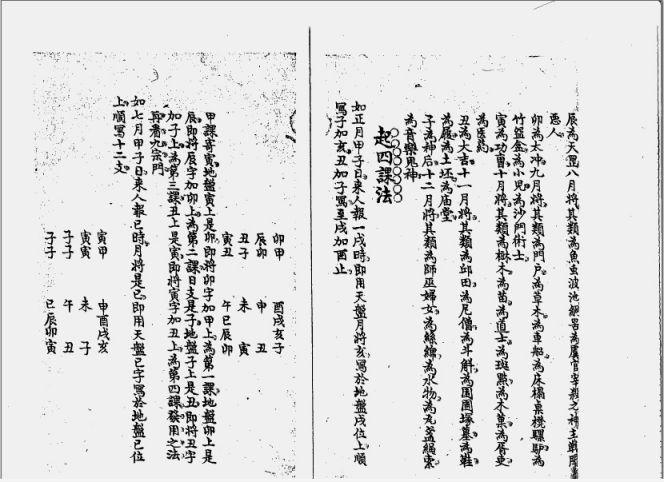 辰為天罡八月將其類為魚虫波池網罟為屠宰
惡人
卯為太冲九月將其類為門戶為草木為車船為床榻桌櫈騾馿為
竹筐盒為小兒為沙門術士
寅為功曹十月將其類為樹木為苗為道士為斑點為木菓為胥吏
為医葯
丑為大吉十一月將其類為邱田為尼僧為斗斛為园圃塚墓為鞋
為履為土坯為庙堂
子為神后十二月將其類為師巫婦女為絲繒為水物為繩索
為音樂鬼神
起四課法
如正月甲子日來人報一戌時即用天盤月將亥寫於地盤戌位上順
寫子加亥丑加子寫至戌加酉止
卯甲 酉戌亥子
辰卯 申 丑
丑子 未 寅
寅丑 午巳辰卯
甲課寄寅地盤寅上是卯即將卯字加甲上為第一課地盤卯上是
辰即將辰字加卯上為第二課日支是子地盤子上是丑即將丑字
加子上為第三課丑上是寅即將寅字加丑上為第四課發用之法
再看九宗門
如七月甲子日來人報巳時月將是巳即用天盤巳字寫於地盤巳位
上順寫十二支
寅甲 申酉戌亥
寅寅 未 子
子子 午 丑
子子 巳辰卯寅